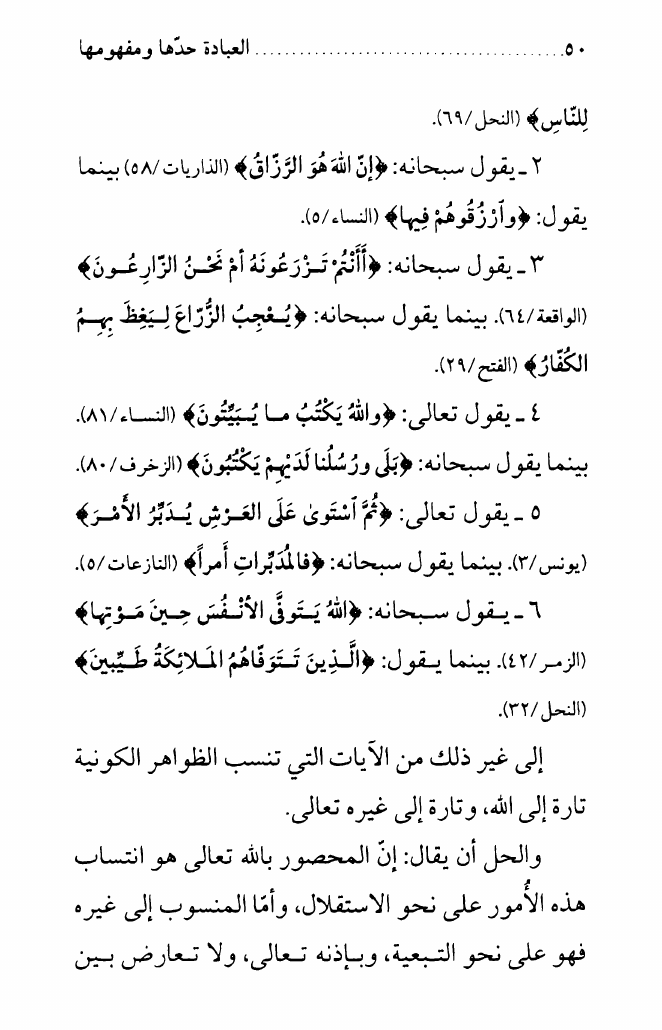 ٥٠ ........................................ العبادة حدّها ومفهومها
لِلنّاسِ﴾ (النحل/٦٩).
٢ ـ يقول سبحانه: ﴿إنّ اللهَ هُوَ الرَّزّاقُ﴾ (الذاريات/٥٨) بينما
يقول: ﴿وٱرْزُقُوهُمْ فِيها﴾ (النساء/٥).
٣ ـ يقول سبحانه: ﴿أَأَنْتُمْ تَزْرَعُونَهُ أمْ نَحْنُ الزّارِعُونَ﴾
(الواقعة/٦٤). بينما يقول سبحانه: ﴿يُعْجِبُ الزُّرّاعَ لِيَغِظَ بِهِمُ
الكُفّارُ﴾ (الفتح/٢٩).
٤ ـ يقول تعالى: ﴿واللهُ يَكْتُبُ ما يُبَيِّتُونَ﴾ (النساء/٨١).
بينما يقول سبحانه: ﴿بَلَى ورُسُلُنا لَدَيْهِمْ يَكْتُبُونَ﴾ (الزخرف/٨٠).
٥ ـ يقول تعالى: ﴿ثُمَّ ٱسْتَوىٰ عَلَى العَرْشِ يُدَبِّرُ الأَمْرَ﴾
(يونس/٣). بينما يقول سبحانه: ﴿فالمُدَبِّراتِ أمراً﴾ (النازعات/٥).
٦ ـ يقول سبحانه: ﴿اللهُ يَتَوفَّى الأنْفُسَ حِينَ مَوْتِها﴾
(الزمر/٤٢). بينما يقول: ﴿الَّذِينَ تَتَوَفّاهُمُ المَلائِكَةُ طَيِّبينَ﴾
(النحل/٣٢).
إلى غير ذلك من الآيات التي تنسب الظواهر الكونية
تارة إلى الله، وتارة إلى غيره تعالى.
والحل أن يقال: إنّ المحصور بالله تعالى هو انتساب
هذه الأُمور على نحو الاستقلال، وأمّا المنسوب إلى غيره
فهو على نحو التبعية، وبإذنه تعالى، ولا تعارض بين